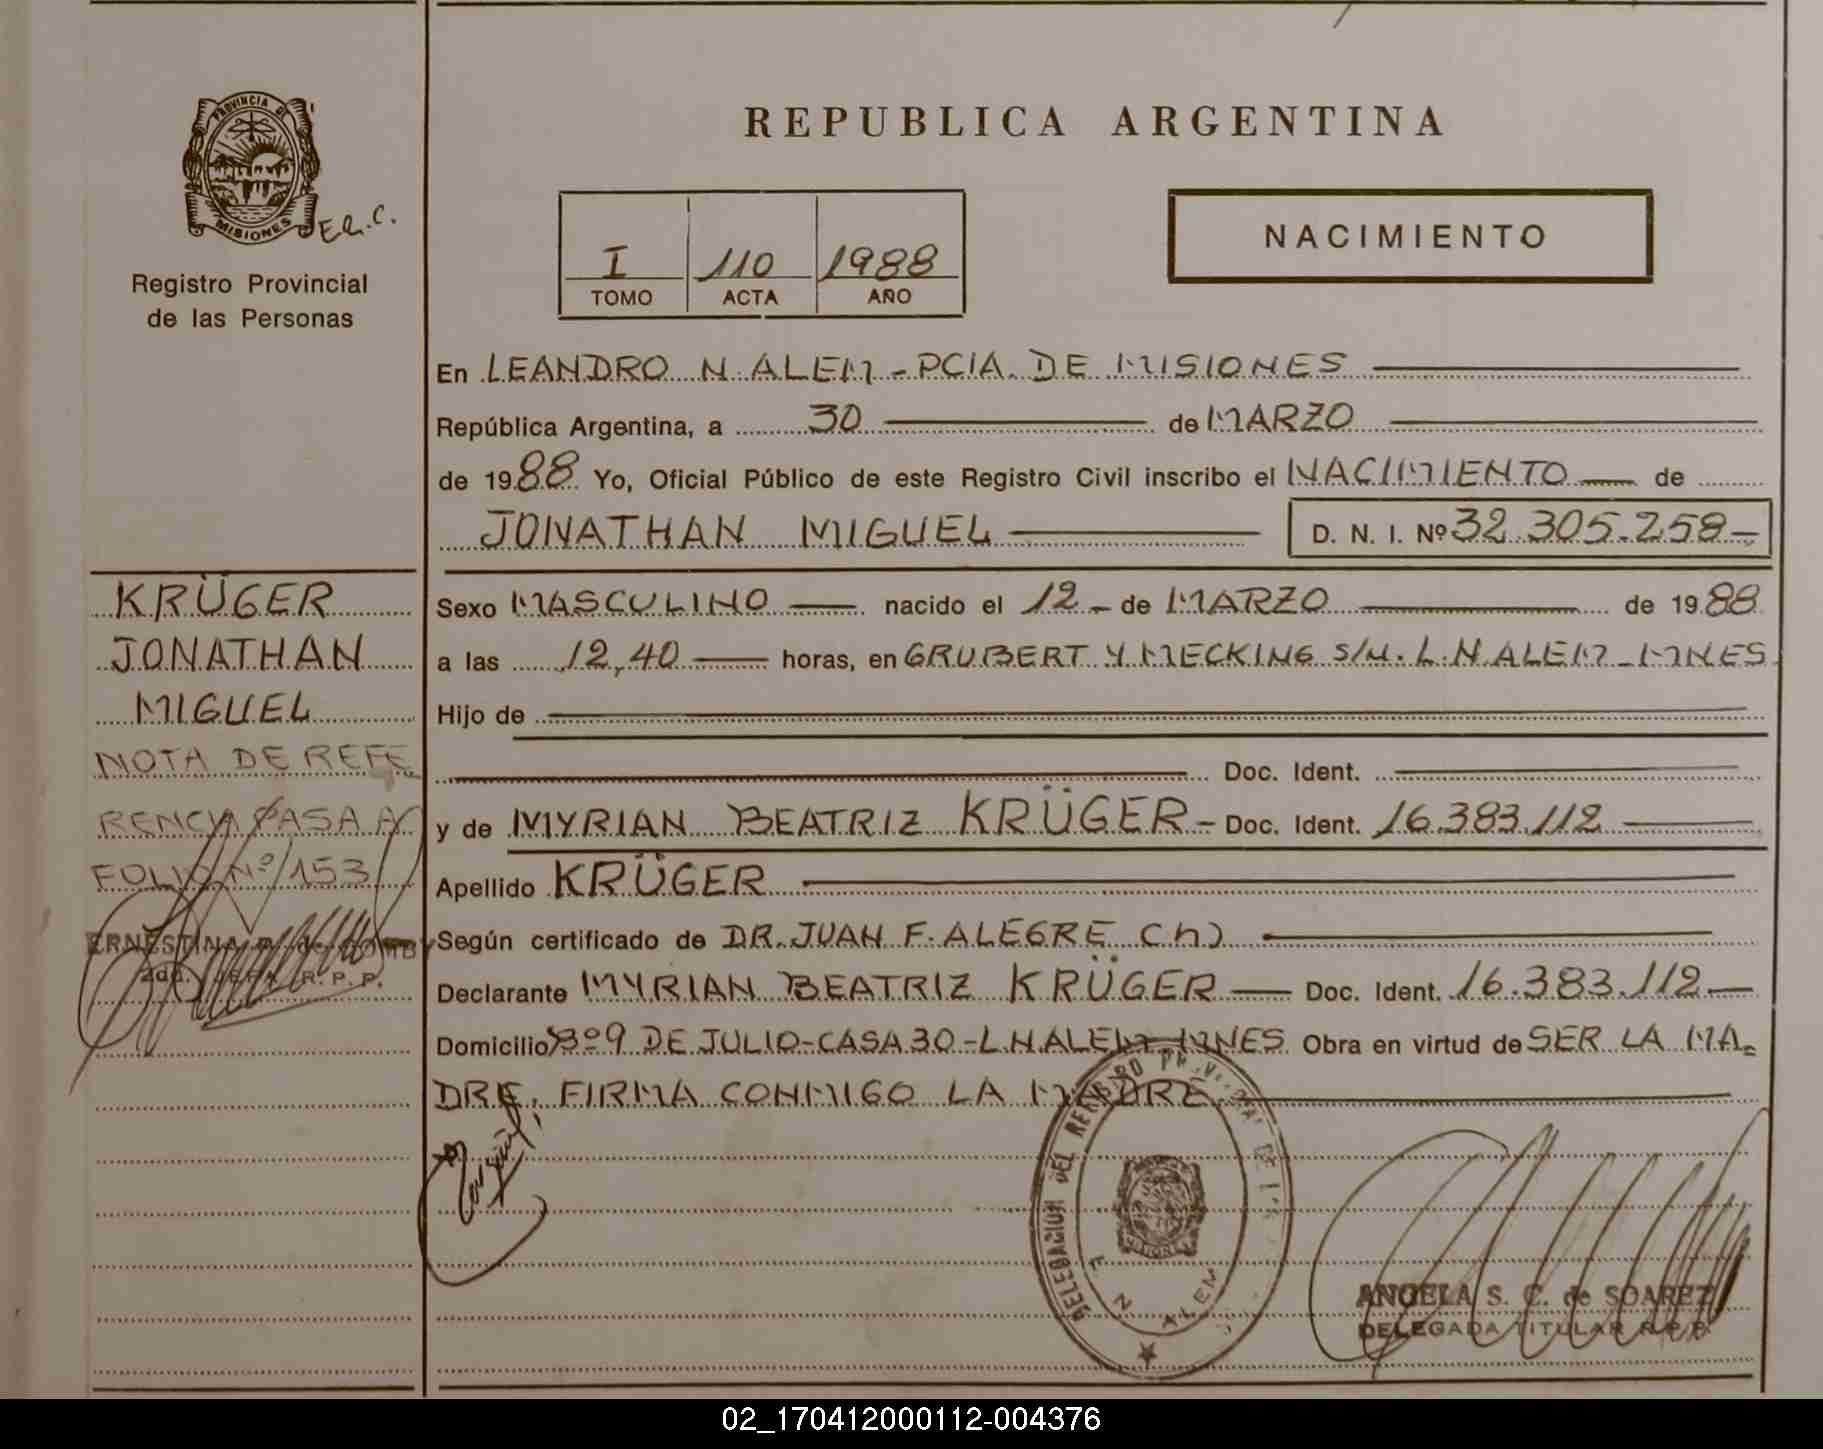 PROVINCIA DE
MISIONES
E.R.C.
Registro Provincial
de las Personas
REPUBLICA ARGENTINA
I 110 1988
TOMO ACTA AÑO
NACIMIENTO
En LEANDRO N. ALEM - PCIA. DE MISIONES
República Argentina, a 30 de MARZO
de 1988 Yo, Oficial Público de este Registro Civil inscribo el NACIMIENTO de
JONATHAN MIGUEL D. N. I. Nº 32.305.258-
KRÜGER
JONATHAN
MIGUEL
NOTA DE REFE
RENCIA PASA A
FOLIO Nº 153
ERNESTINA
2da. JEFA R.P.P.
Sexo MASCULINO nacido el 12 - de MARZO de 1988
a las 12,40 horas, en GRUBERT Y MECKING S/N. L.N.ALEM - MNES
Hijo de
Doc. Ident.
y de MYRIAN BEATRIZ KRÜGER - Doc. Ident. 16.383.112
Apellido KRÜGER
Según certificado de DR. JUAN F. ALEGRE (h)
Declarante MYRIAN BEATRIZ KRÜGER Doc. Ident. 16.383.112
Domicilio Bº 9 DE JULIO-CASA 30-L.N.ALEM-MNES Obra en virtud de SER LA MA=
DRE. FIRMA CONMIGO LA MADRE
DELEGACION DEL REGISTRO PROVINCIAL DE
L. N. ALEM
ANGELA S. C. de SOAREZ
DELEGADA TITULAR R.P.P.
02_170412000112-004376